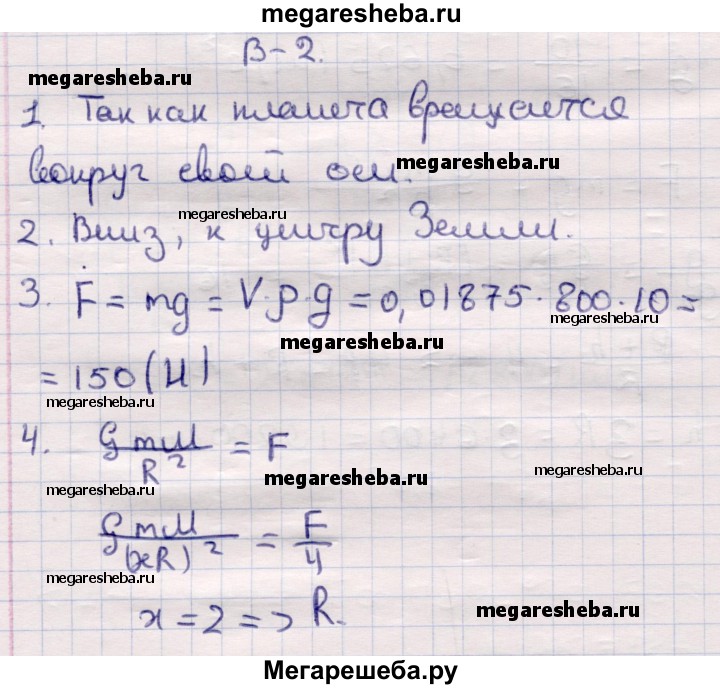 megaresheba.ru
В-2.
megaresheba.ru megaresheba.ru
1. Так как планета вращается
вокруг своей оси. megaresheba.ru
megaresheba.ru
2. Вниз, к центру Земли.
3. F = mg = V·ρ·g = 0,01875·800·10 =
megaresheba.ru
= 150 (Н)
megaresheba.ru
4. GmM/R² = F
megaresheba.ru
megaresheba.ru
GmM/(xR)² = F/4
megaresheba.ru
x = 2 => R.
megaresheba.ru
Мегарешеба.ру